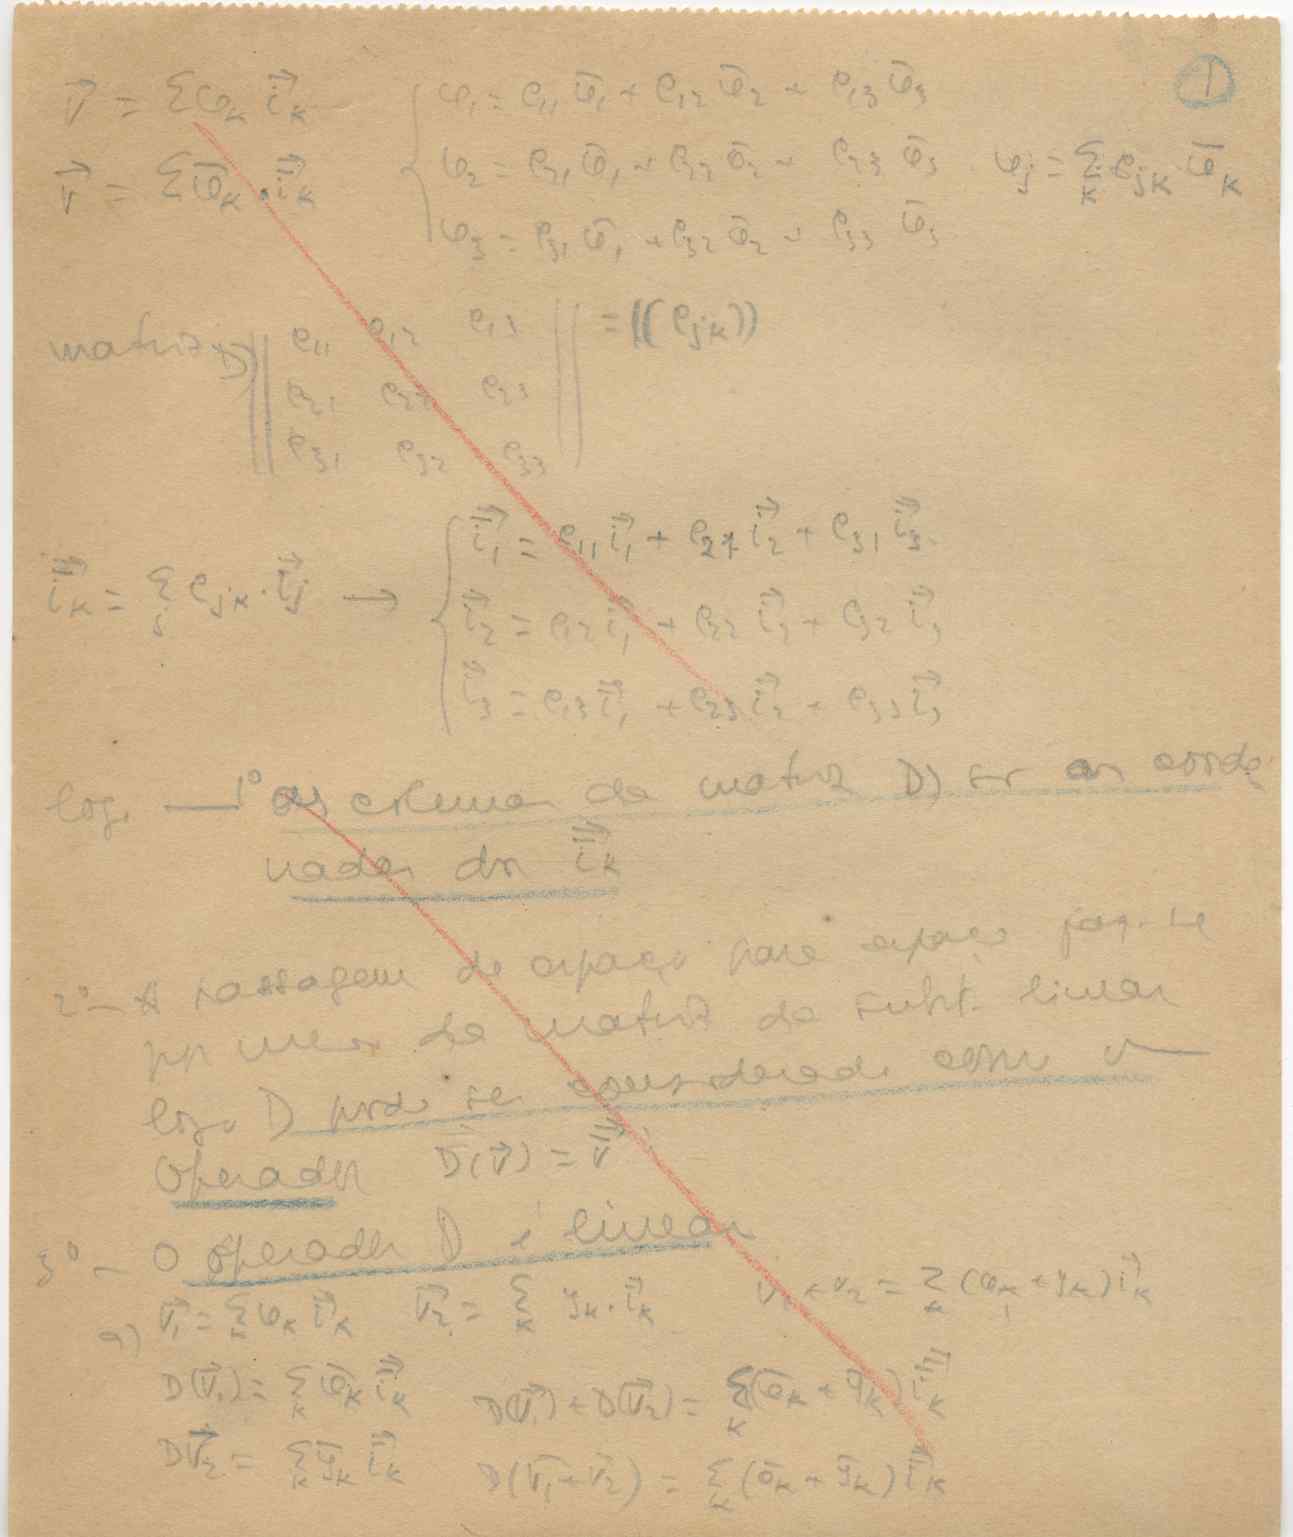 1
v⃗ = Σφₖ i⃗ₖ
v⃗ = Σφ̄ₖ · i̿⃗ₖ
φ₁ = e₁₁ φ̄₁ + e₁₂ φ̄₂ + e₁₃ φ̄₃
φ₂ = e₂₁ φ̄₁ + e₂₂ φ̄₂ + e₂₃ φ̄₃
φ₃ = e₃₁ φ̄₁ + e₃₂ φ̄₂ + e₃₃ φ̄₃
φⱼ = Σₖ eⱼₖ · φ̄ₖ
matriz D || e₁₁ e₁₂ e₁₃ || = ((eⱼₖ))
e₂₁ e₂₂ e₂₃
e₃₁ e₃₂ e₃₃
i̿⃗ₖ = Σⱼ eⱼₖ · i⃗ⱼ →
i̿⃗₁ = e₁₁ i⃗₁ + e₂₁ i⃗₂ + e₃₁ i⃗₃
i̿⃗₂ = e₁₂ i⃗₁ + e₂₂ i⃗₂ + e₃₂ i⃗₃
i̿⃗₃ = e₁₃ i⃗₁ + e₂₃ i⃗₂ + e₃₃ i⃗₃
logo — 1º as colunas da matriz D) são as coorde
nadas dos i̿⃗ₖ
2º — A passagem de espaço para espaço faz-se
por meio da matriz da subst. linear
logo D pode ser considerado como
operador D(v⃗) = v̿⃗
3º — O operador D é linear
a) v⃗₁ = Σₖ φₖ i⃗ₖ v⃗₂ = Σₖ yₖ · i⃗ₖ v₁ + v₂ = Σₖ (φₖ + yₖ) i⃗ₖ
D(v⃗₁) = Σₖ φ̄ₖ i̿⃗ₖ D(v⃗₁) + D(v⃗₂) = Σₖ (φ̄ₖ + ȳₖ) i̿⃗ₖ
Dv⃗₂ = Σₖ ȳₖ i̿⃗ₖ D(v⃗₁ + v⃗₂) = Σₖ (φ̄ₖ + ȳₖ) i̿⃗ₖ